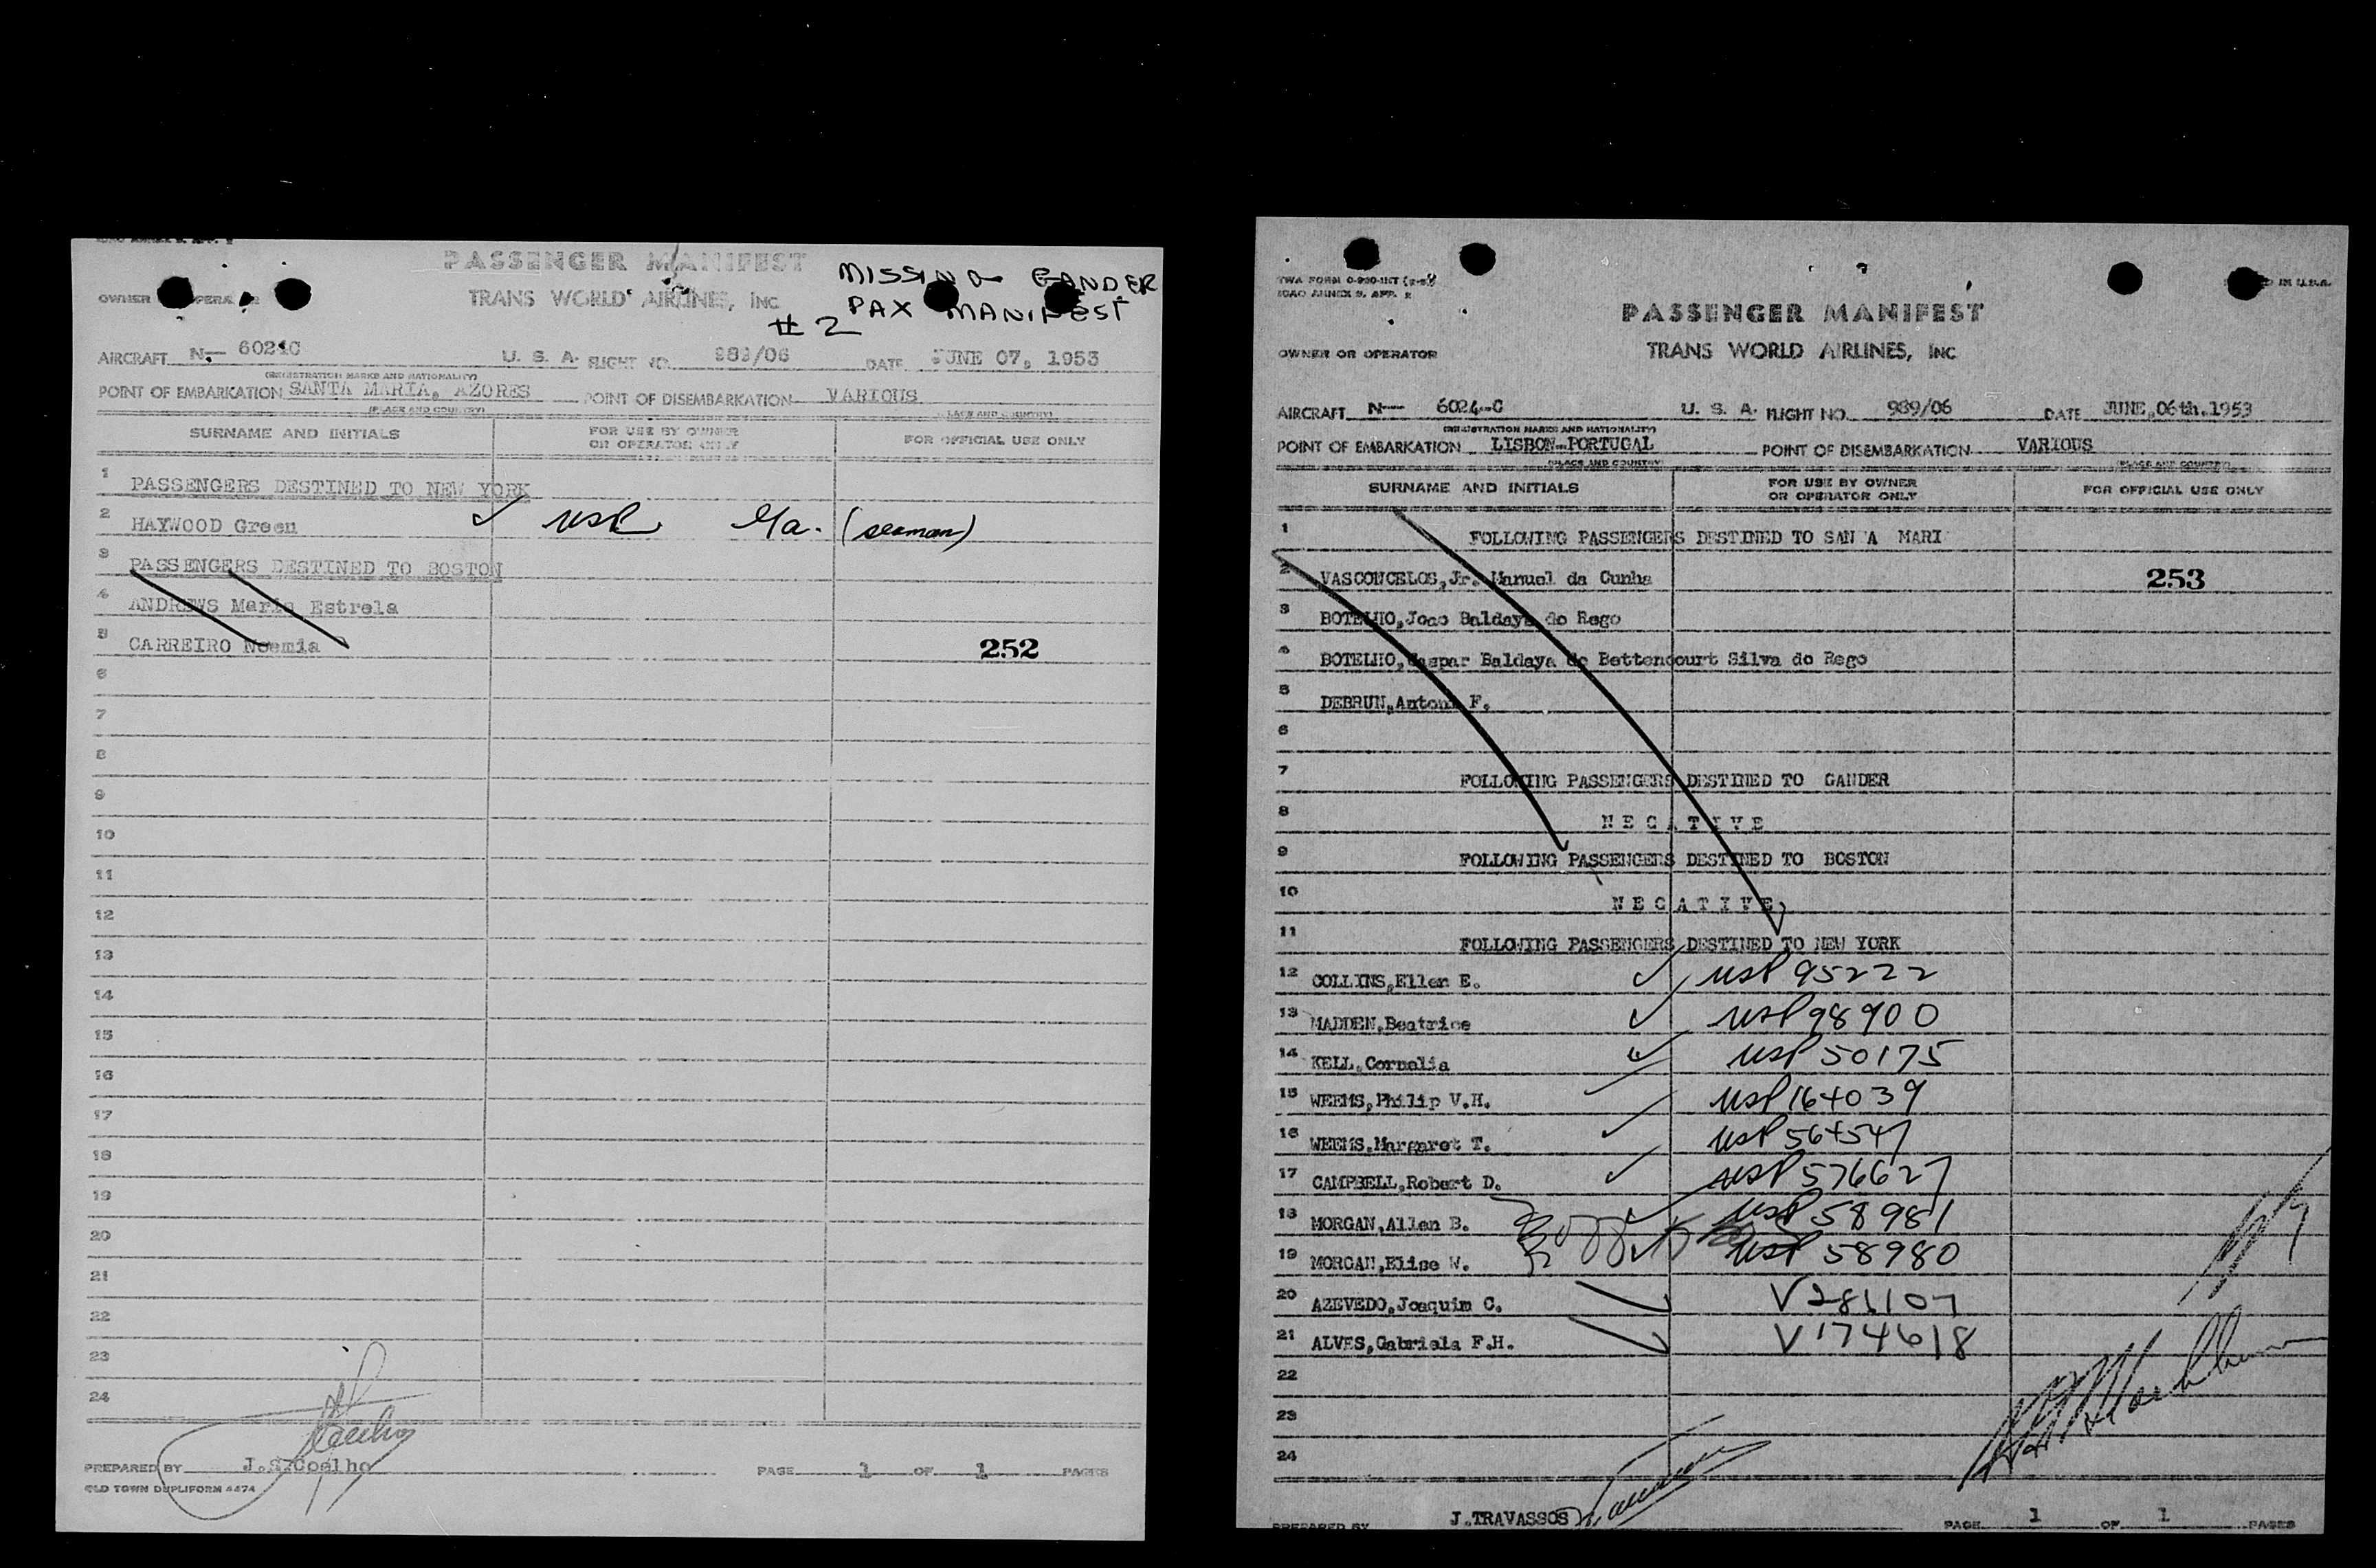 ICAO ANNEX 9, APP. 2
PASSENGER MANIFEST
MISSING GANDER
PAX MANIFEST
# 2
OWNER OPERA
TRANS WORLD AIRLINES, INC
AIRCRAFT N— 6024C U. S. A. FLIGHT NO. 989/06 DATE JUNE 07, 1953
(REGISTRATION MARKS AND NATIONALITY)
POINT OF EMBARKATION SANTA MARIA, AZORES POINT OF DISEMBARKATION VARIOUS
(PLACE AND COUNTRY) (PLACE AND COUNTRY)
SURNAME AND INITIALS FOR USE BY OWNER OR OPERATOR ONLY FOR OFFICIAL USE ONLY
1 PASSENGERS DESTINED TO NEW YORK
2 HAYWOOD Green ✓ USP Ga. (seaman)
3 PASSENGERS DESTINED TO BOSTON
4 ANDREWS Maria Estrela
5 CARREIRO Noemia 252
6
7
8
9
10
11
12
13
14
15
16
17
18
19
20
21
22
23
24
PREPARED BY J.S.Coelho PAGE 1 OF 1 PAGES
OLD TOWN DUPLIFORM 4474
TWA FORM
ICAO ANNEX 9, APP. 2
IN U.S.A.
PASSENGER MANIFEST
OWNER OR OPERATOR TRANS WORLD AIRLINES, INC
AIRCRAFT N— 6024-C U. S. A. FLIGHT NO. 989/06 DATE JUNE,06th.1953
(REGISTRATION MARKS AND NATIONALITY)
POINT OF EMBARKATION LISBON-PORTUGAL POINT OF DISEMBARKATION VARIOUS
(PLACE AND COUNTRY) (PLACE AND COUNTRY)
SURNAME AND INITIALS FOR USE BY OWNER OR OPERATOR ONLY FOR OFFICIAL USE ONLY
1 FOLLOWING PASSENGERS DESTINED TO SAN A MARI
2 VASCONCELOS,Jr. Manuel da Cunha 253
3 BOTELHO,Joao Baldaya do Rego
4 BOTELHO,Gaspar Baldaya do Bettencourt Silva do Rego
5 DEBRUN,Antoni F.
6
7 FOLLOWING PASSENGERS DESTINED TO GANDER
8 N E G A T I V E
9 FOLLOWING PASSENGERS DESTINED TO BOSTON
10 N E G A T I V E
11 FOLLOWING PASSENGERS DESTINED TO NEW YORK
12 COLLINS,Ellen E. ✓ USP 95222
13 MADDEN,Beatrice ✓ USP 98900
14 KELL,Cornelia ✓ USP 50175
15 WEEMS,Philip V.H. ✓ USP 164039
16 WEEMS,Margaret T. ✓ USP 564547
17 CAMPBELL,Robert D. ✓ USP 576627
18 MORGAN,Allen B. ✓ USP 58981
19 MORGAN,Elise W. ✓ USP 58980
20 AZEVEDO,Joaquim C. V281107
21 ALVES,Gabriela F.H. V174618
22
23
24
PREPARED BY J.TRAVASSOS PAGE 1 OF 1 PAGES